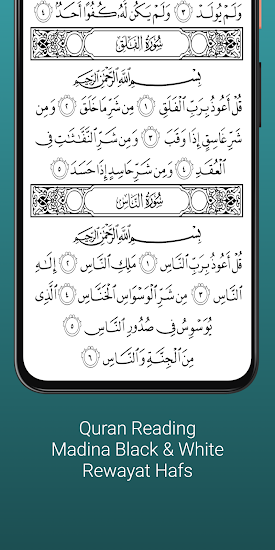 وَلَمْ يُولَدْ ٣ وَلَمْ يَكُن لَّهُۥ كُفُوًا أَحَدٌۢ ٤
سُورَةُ الفَلَقِ
بِسْمِ ٱللَّهِ ٱلرَّحْمَٰنِ ٱلرَّحِيمِ
قُلْ أَعُوذُ بِرَبِّ ٱلْفَلَقِ ١ مِن شَرِّ مَا خَلَقَ ٢ وَمِن
شَرِّ غَاسِقٍ إِذَا وَقَبَ ٣ وَمِن شَرِّ ٱلنَّفَّٰثَٰتِ فِى
ٱلْعُقَدِ ٤ وَمِن شَرِّ حَاسِدٍ إِذَا حَسَدَ ٥
سُورَةُ النَّاسِ
بِسْمِ ٱللَّهِ ٱلرَّحْمَٰنِ ٱلرَّحِيمِ
قُلْ أَعُوذُ بِرَبِّ ٱلنَّاسِ ١ مَلِكِ ٱلنَّاسِ ٢ إِلَٰهِ
ٱلنَّاسِ ٣ مِن شَرِّ ٱلْوَسْوَاسِ ٱلْخَنَّاسِ ٤ ٱلَّذِى
يُوَسْوِسُ فِى صُدُورِ ٱلنَّاسِ ٥
مِنَ ٱلْجِنَّةِ وَٱلنَّاسِ ٦
Quran Reading
Madina Black & White
Rewayat Hafs